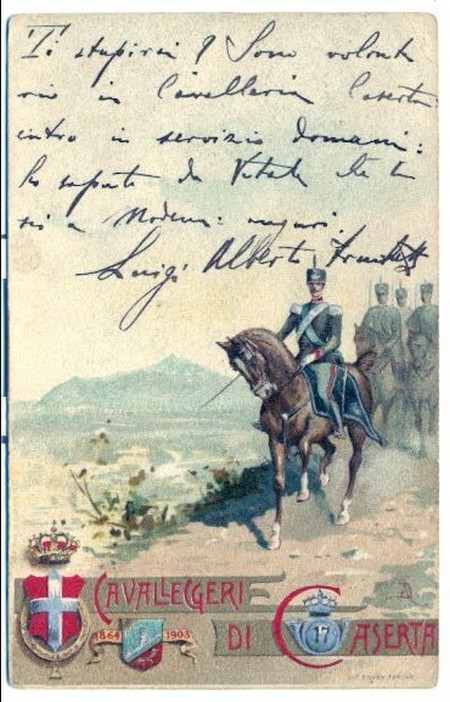 Ti stupirai? Sono volonta
rio in Cavalleria Caserta
entro in servizio domani:
ho saputo da Vitale che tu
sei a Modena: auguri.
Luigi Alberto
CAVALLEGGERI
1864 1903
DI CASERTA
17